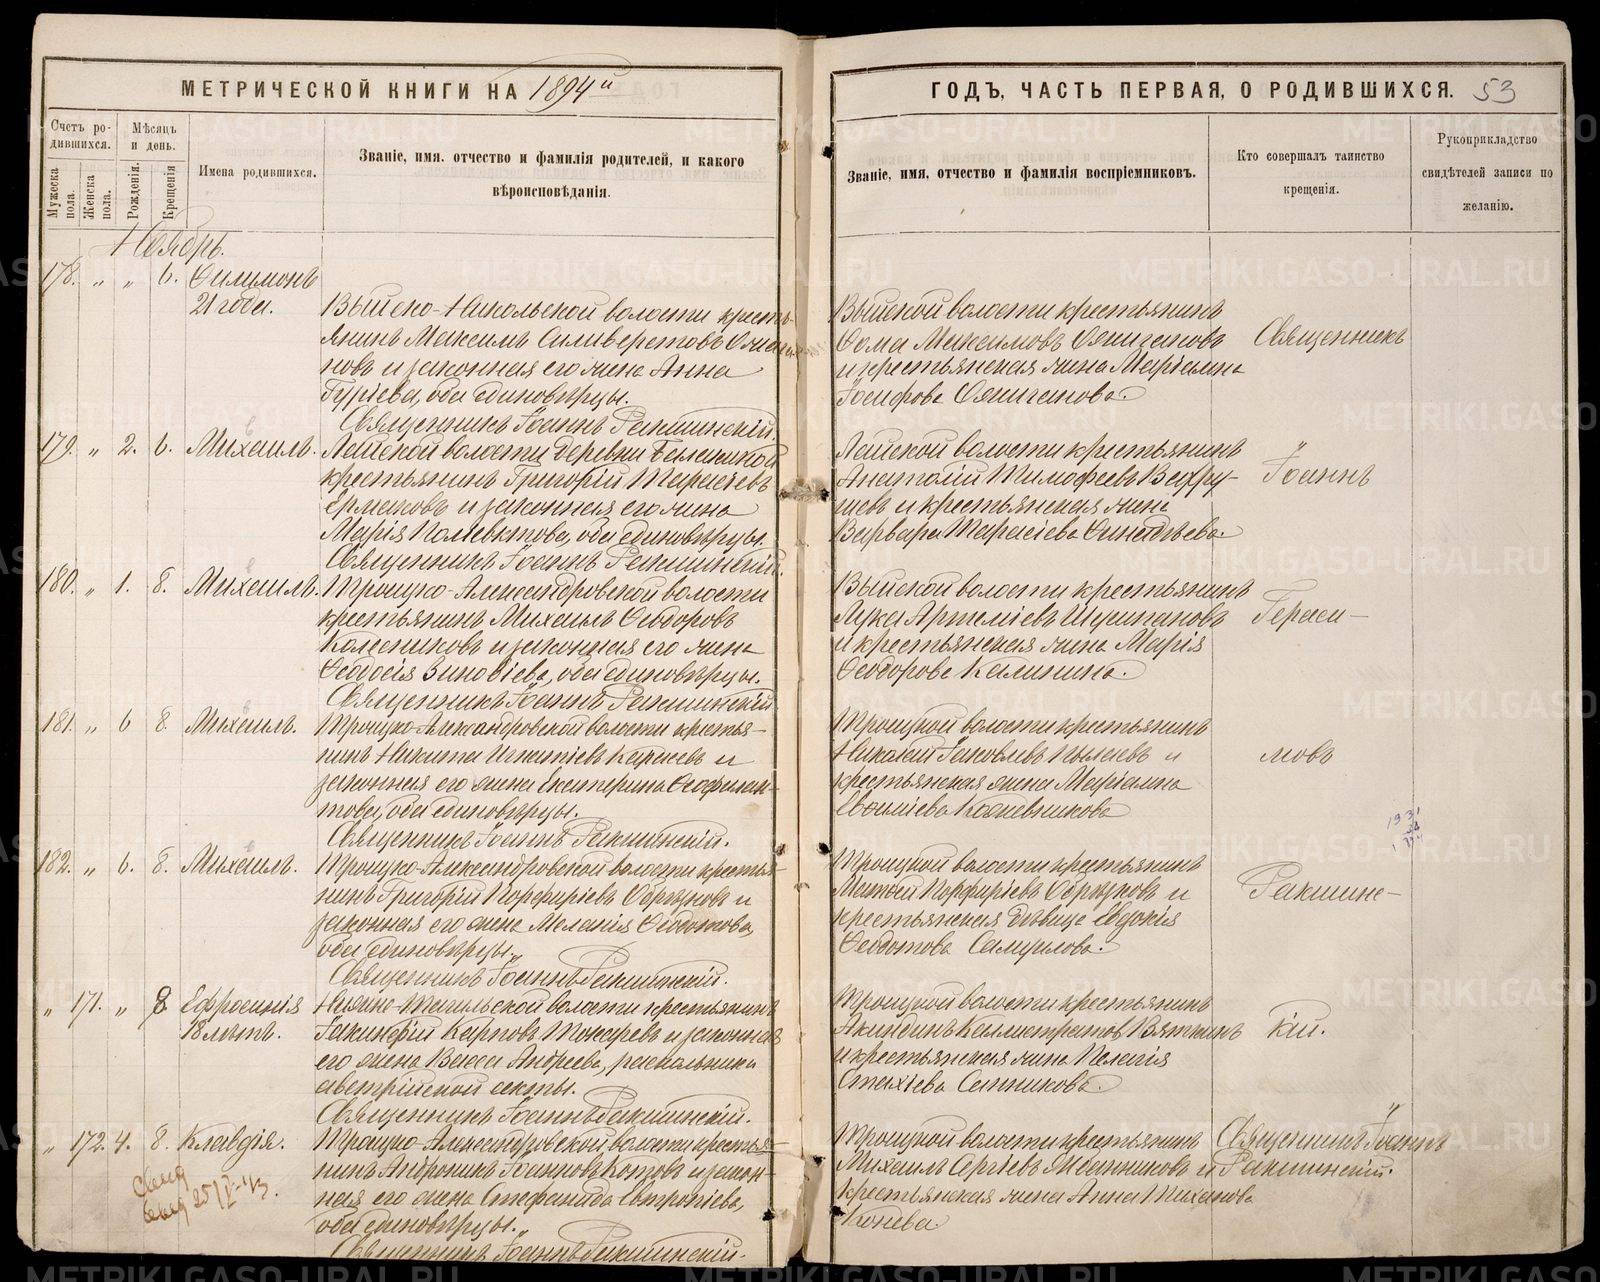 МЕТРИЧЕСКОЙ КНИГИ НА 1894й
Счетъ ро-
дившихся.
Мѣсяцъ
и день.
Мужеска
пола.
Женска
пола.
Рожденія.
Крещенія
Имена родившихся.
Званіе, имя, отчество и фамилія родителей, и какого
вѣроисповѣданія.
Ноябрь.
178. " " 6. Филимонъ
21 года.
Выйско-Никольской волости кресть-
янинъ Максимъ Силиверстовъ
новъ и законная его жена Анна
Гуріева, оба единовѣрцы.
Священникъ Іоаннъ Ракшинскій.
179. " 2. 6. Михаилъ.
Лайской волости деревни
крестьянинъ Григорій Тарасіевъ
Ермаковъ и законная его жена
Марія оба единовѣрцы.
Священникъ Іоаннъ Ракшинскій.
180. " 1. 8. Михаилъ.
Троицко-Александровской волости
крестьянинъ Михаилъ Ѳеодоровъ
Колесниковъ и законная его жена
Ѳеодосія Зиновіева, оба единовѣрцы.
Священникъ Іоаннъ Ракшинскій
181. " 6 8. Михаилъ.
Троицко-Александровской волости крестья-
нинъ Никита Игнатіевъ и
законная его жена Екатерина Ѳеофилак-
това, оба единовѣрцы.
Священникъ Іоаннъ Ракшинскій.
182. " 6. 8. Михаилъ.
Троицко-Александровской волости крестья-
нинъ Григорій Порфиріевъ Образковъ и
законная его жена Меланія Ѳедотова,
оба единовѣрцы.
Священникъ Іоаннъ Ракшинскій.
" 171. " 8 Ефросинія
18 лѣтъ.
Нижне-Тагильской волости крестьянинъ
Іакинфій Карповъ и законная
его жена Васса Андреева, раскольники
австрійской секты.
Священникъ Іоаннъ Ракшинскій.
" 172. 4. 8. Клавдія.
Троицко-Александровской волости крестья-
нинъ Андроникъ Іоанновъ и закон-
ная его жена Стефанида Евтропіева,
оба единовѣрцы.
Священникъ Іоаннъ Ракшинскій.
ГОДЪ, ЧАСТЬ ПЕРВАЯ, О РОДИВШИХСЯ. 53
Званіе, имя, отчество и фамилія воспріемниковъ.
Кто совершалъ таинство
крещенія.
Рукоприкладство
свидѣтелей записи по
желанію.
Выйской волости крестьянинъ
Ѳома Максимовъ
и крестьянская жена Маріамна
Іосифова
Лайской волости крестьянинъ
Анатолій Тимофеевъ Вахру-
шевъ и крестьянская жена
Варвара Тарасіева
Выйской волости крестьянинъ
Лука Артеміевъ
и крестьянская жена Марія
Ѳеодорова Калинина.
Троицкой волости крестьянинъ
Николай Іаковлевъ и
крестьянская жена Маріамна
Кожевникова
Троицкой волости крестьянинъ
Матѳей Порфиріевъ Образковъ и
крестьянская дѣвица Евдокія
Ѳедотова Самуилова.
Троицкой волости крестьянинъ
Акиндинъ Калистратовъ Вяткинъ
и крестьянская жена Пелагія
Стахіева Ситникова.
Троицкой волости крестьянинъ
Михаилъ Сергіевъ Мясниковъ и
крестьянская жена Анна Тихонова
Конева.
Священникъ
Іоаннъ
Гераси-
мовъ
Ракшинс-
кій.
Священникъ Іоаннъ
Ракшинскій.
METRIKI.GASO-URAL.RU